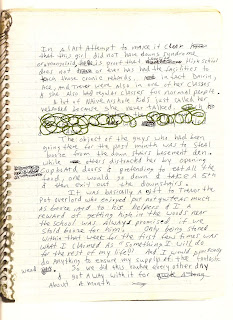 In a last attempt to make it clear
that this girl did not have downs syndrome
point that High school
does not or ever has had the facilities to
teach those cronic retards. in fact Darrin,
Ace, and Trever were also in one of her classes
& she also had regular classes for normal people.
A lot of kids just called her
retarded because she never talked
The object of the guys who had been
going there for the past month was to steal
booze from the down stairs basement den.
while others distracted her by opening
cupboard doors & pretending to eat all the
food, one would go down & take a 5th
& then exit out the downstairs.
It was basically a gift to Trevor the
Pot overlord who enjoyed pot not quite as much
as booze and to his helpers & I a
reward of getting high in the woods near
the school was always promised if we
stole booze for him. Only being stoned
within that week for the first few times was
what I claimed as "something I will do
for the rest of my life!" And I would practically
do anything to ensure my supply of the fantastic
weed So we did this routine every other day
& got away with it for
About a Month